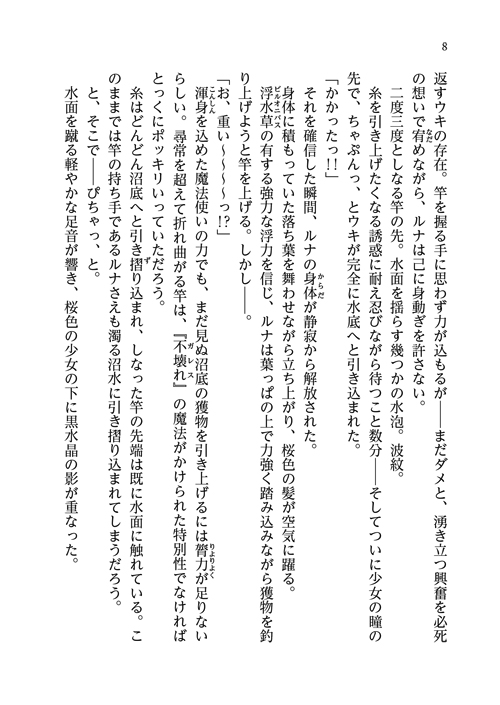 8
返すウキの存在。竿を握る手に思わず力が込もるが――まだダメと、湧き立つ興奮を必死
の想いで宥めながら、ルナは己に身動ぎを許さない。
二度三度としなる竿の先。水面を揺らす幾つかの水泡。波紋。
糸を引き上げたくなる誘惑に耐え忍びながら待つこと数分――そしてついに少女の瞳の
先で、ちゃぷんっ、とウキが完全に水底へと引き込まれた。
「かかったっ!!」
それを確信した瞬間、ルナの身体が静寂から解放された。
身体に積もっていた落ち葉を舞わせながら立ち上がり、桜色の髪が空気に躍る。
浮水草の有する強力な浮力を信じ、ルナは葉っぱの上で力強く踏み込みながら獲物を釣
り上げようと竿を上げる。しかし――。
「お、重い〜〜〜〜っ!?」
渾身を込めた魔法使いの力でも、まだ見ぬ沼底の獲物を引き上げるには膂力が足りない
らしい。尋常を超えて折れ曲がる竿は、『不壊れ』の魔法がかけられた特別性でなければ
とっくにポッキリいっていただろう。
糸はどんどん沼底へと引き摺り込まれ、しなった竿の先端は既に水面に触れている。こ
のままでは竿の持ち手であるルナさえも濁る沼水に引き摺り込まれてしまうだろう。
と、そこで――ぴちゃっ、と。
水面を蹴る軽やかな足音が響き、桜色の少女の下に黒水晶の影が重なった。